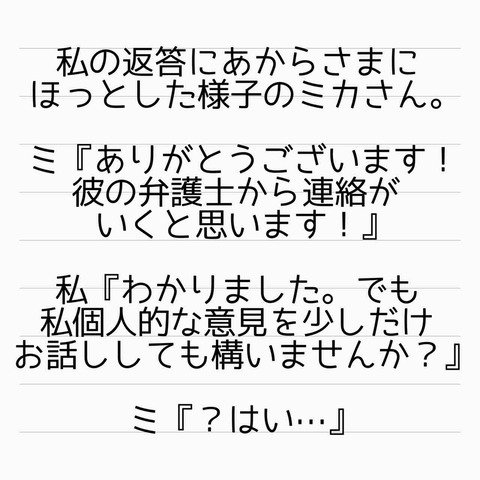 私の返答にあからさまに
ほっとした様子のミカさん。
ミ『ありがとうございます！
彼の弁護士から連絡が
いくと思います！』
私『わかりました。でも
私個人的な意見を少しだけ
お話ししても構いませんか？』
ミ『？はい…』